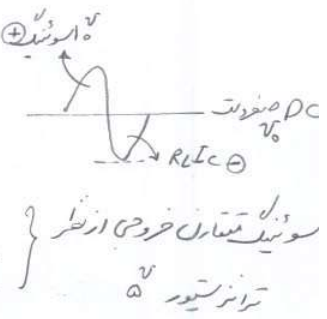 ⊕ سوئینگ v̊
DC صفر ولت v₀
RLIC ⊖
سوئینگ متقارن خروجی از نظر }
ترانزیستور